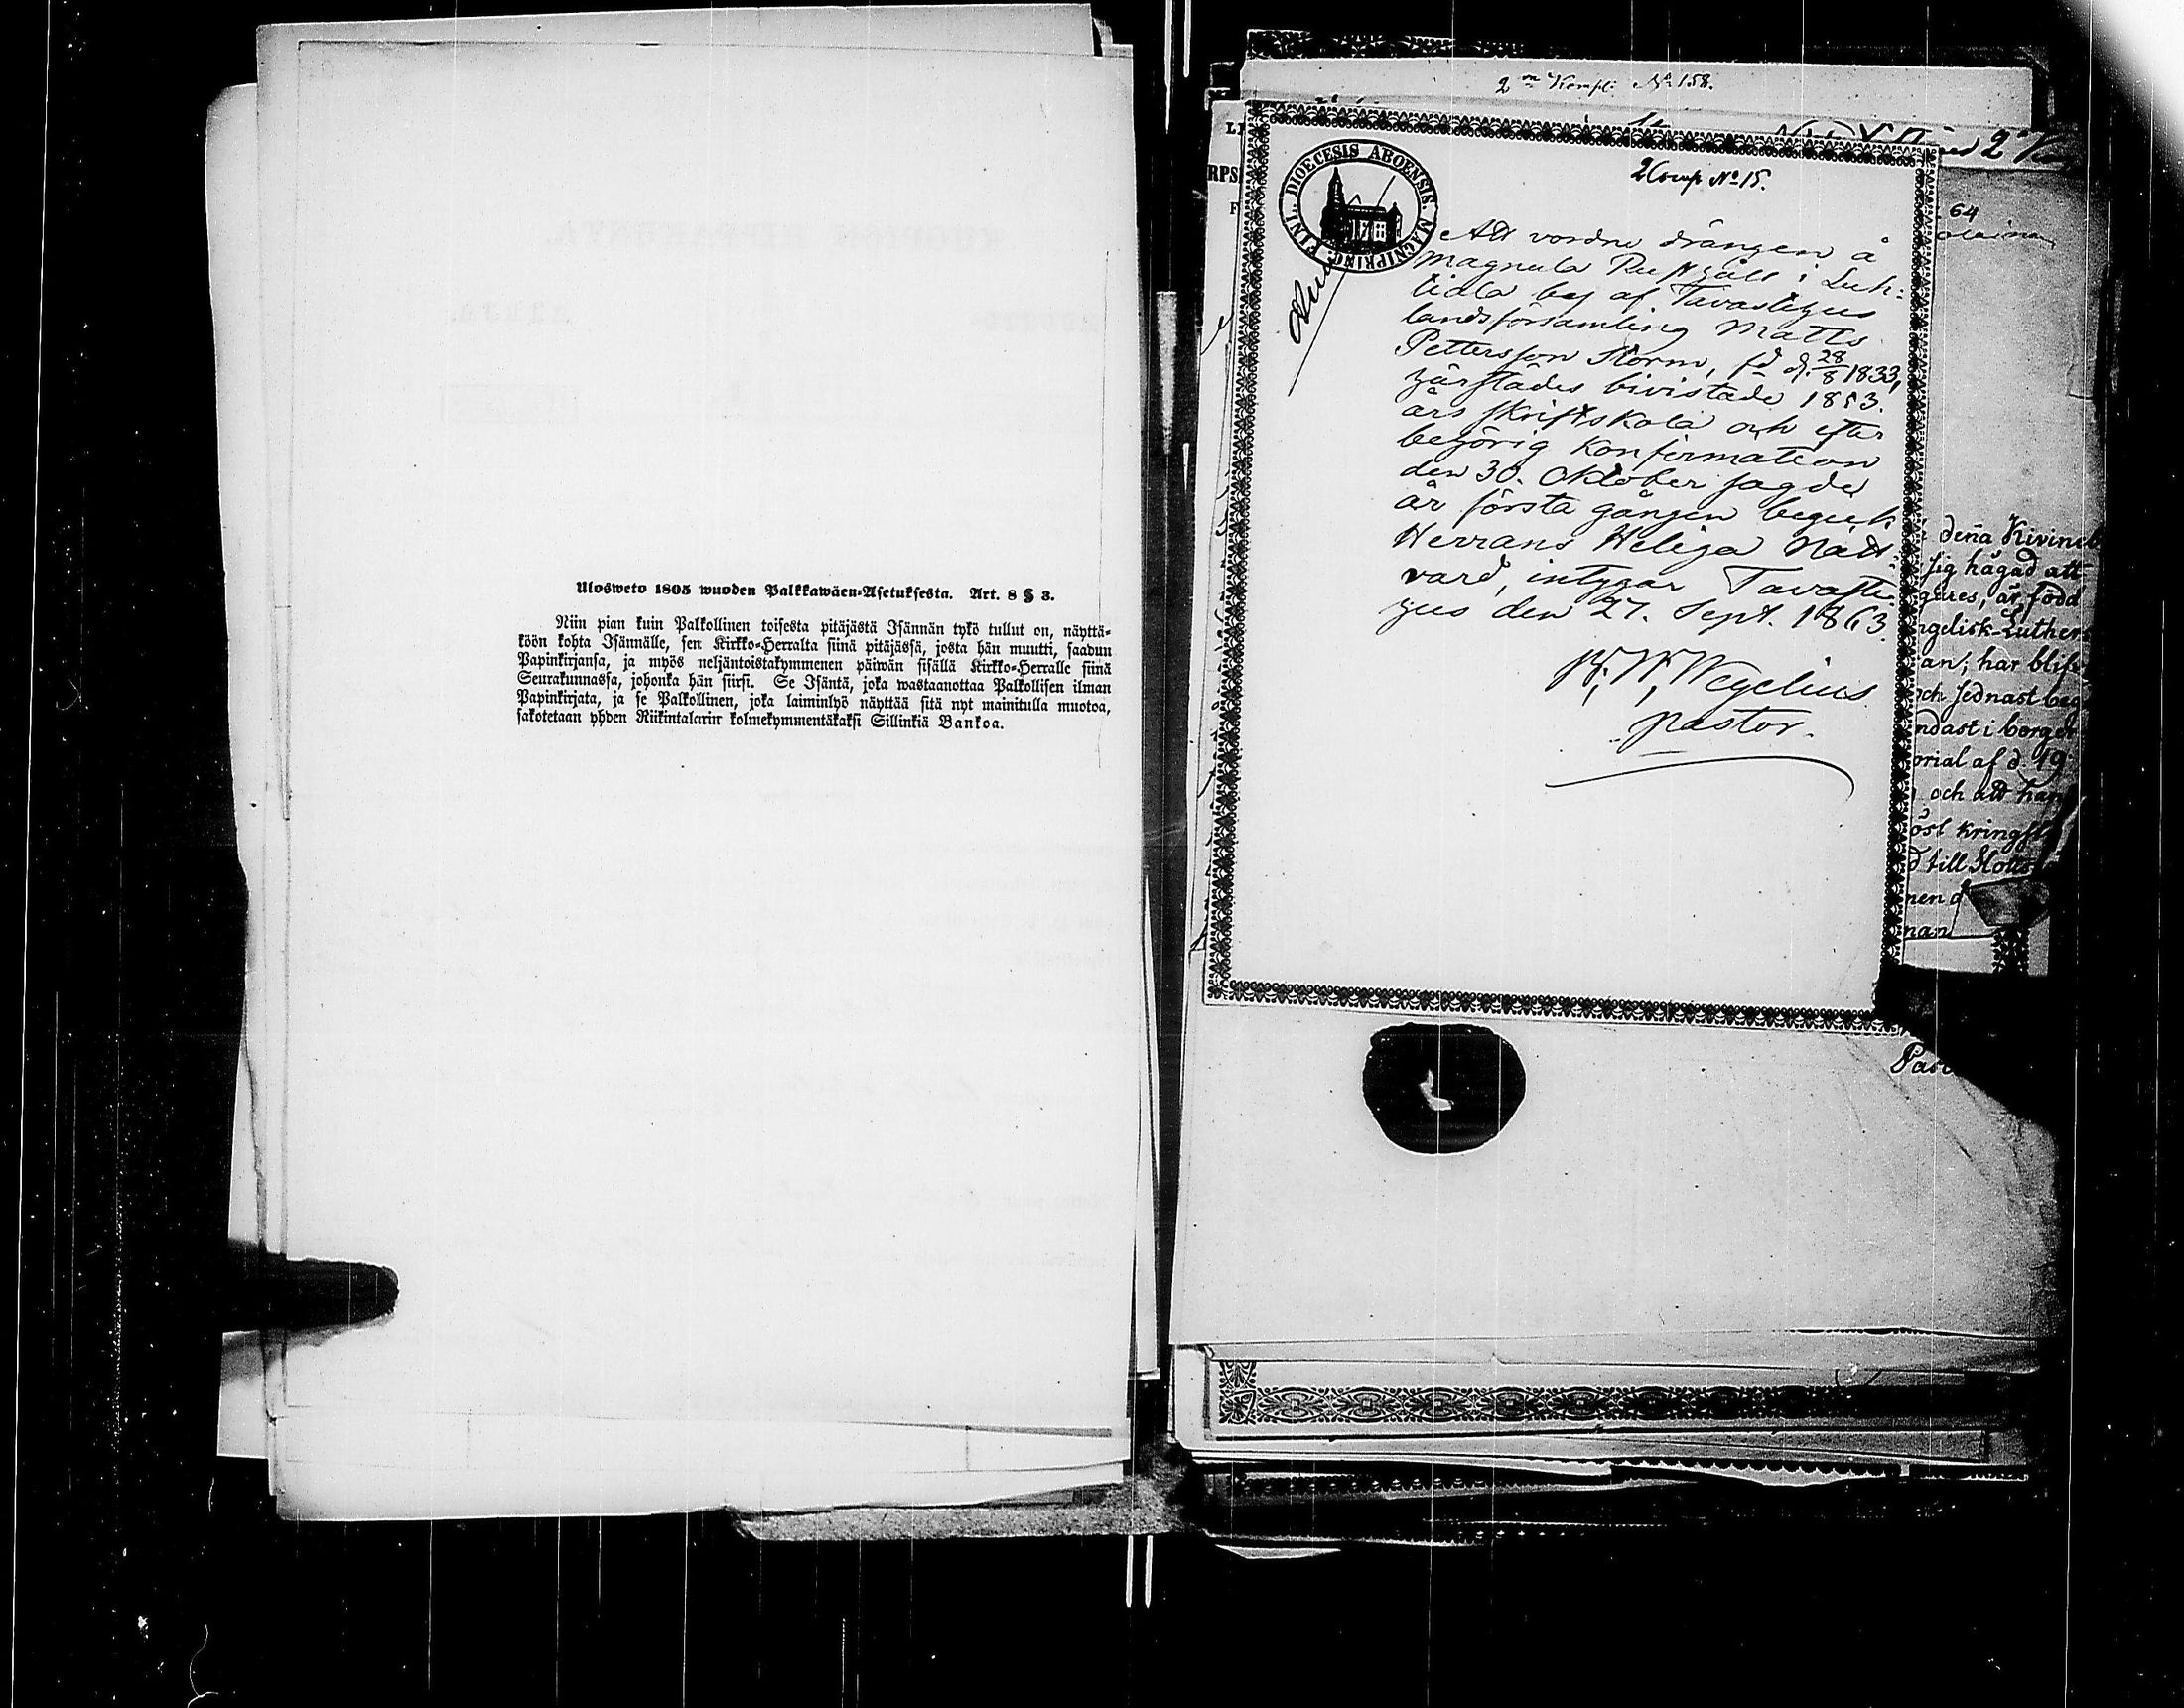 Ulosweto 1805 wuoden Palkkawäen-Asetuksesta. Art. 8 § 3.
Niin pian kuin Palkollinen toisesta pitäjästä Isännän tykö tullut on, näyttä-
köön kohta Isännälle, sen Kirkko-Herralta siinä pitäjässä, josta hän muutti, saadun
Papinkirjansa, ja myös neljäntoistakymmenen päiwän sisällä Kirkko-Herralle siinä
Seurakunnassa, johonka hän siirsi. Se Isäntä, joka wastaanottaa Palkollisen ilman
Papinkirjata, ja se Palkollinen, joka laiminlyö näyttää sitä nyt mainitulla muotoa,
sakotetaan yhden Riikintalarin kolmekymmentäkaksi Sillinkiä Bankoa.
2 Kompi: No 158.
FINL. DIOECESIS ABOENSIS. MAGNIPRINC.
2 Comp No 15.
Att vordne drängen å
Magnula Rusthåll i Luh-
tiala by af Tavastehus
landsförsamling Matts
Pettersson Storm, fd d. 28/8 1833,
härstädes bivistade 1853.
års skriftskola och efter
behörig konfirmation
den 30. Oktober sagde
år första gången begick
Herrans Heliga Natt-
vard, intygar Tavaste-
hus den 27. Sept. 1863.
Wegelius
pastor.
64
dena Kivineb
sig hågad att
gures, är född
ngelisk-Luthers
an; har blif
och sednast beg
ndast i borger
orial af d. 19
och att han
öst kringst
d till
nen
nan